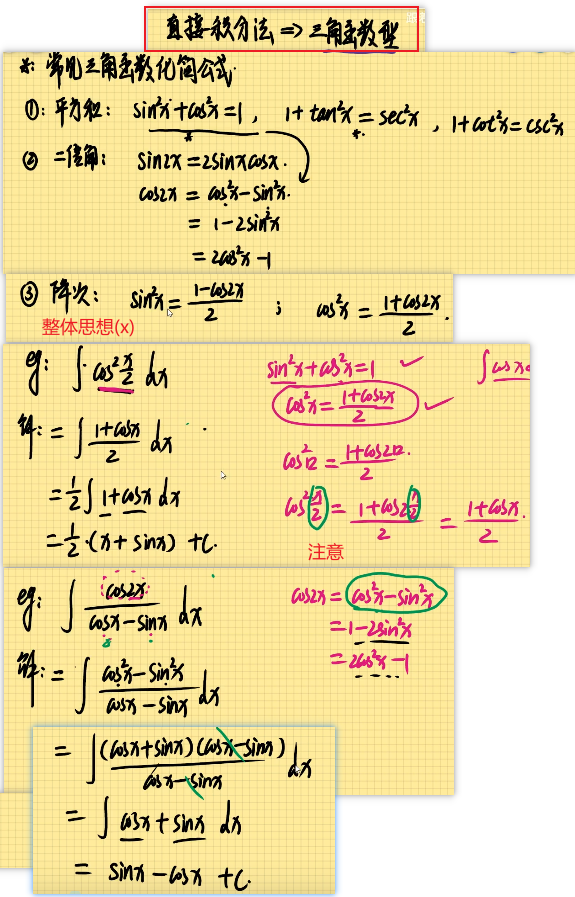 直接积分法 => 三角函数型
※: 常见三角函数化简公式.
①: 平方和: sin²x+cos²x=1, 1+tan²x=sec²x, 1+cot²x=csc²x
② 二倍角: sin2x=2sinxcosx.
cos2x = cos²x-sin²x.
= 1-2sin²x
= 2cos²x-1
③ 降次: sin²x=\frac{1-cos2x}{2} ; cos²x=\frac{1+cos2x}{2}.
整体思想(x)
eg: ∫cos²\frac{x}{2} dx
解: = ∫\frac{1+cosx}{2} dx
=\frac{1}{2}∫1+cosx dx
=\frac{1}{2}·(x+sinx)+C.
sin²x+cos²x=1
∫cosx
cos²x=\frac{1+cos2x}{2}
cos²12=\frac{1+cos2·12}{2}
cos²\frac{x}{2}=\frac{1+cos2\frac{x}{2}}{2}=\frac{1+cosx}{2}.
注意
eg: ∫\frac{cos2x}{cosx-sinx} dx
解: = ∫\frac{cos²x-sin²x}{cosx-sinx} dx
cos2x=cos²x-sin²x
=1-2sin²x
=2cos²x-1
= ∫\frac{(cosx+sinx)(cosx-sinx)}{cosx-sinx} dx
= ∫cosx+sinx dx
= sinx-cosx+C.